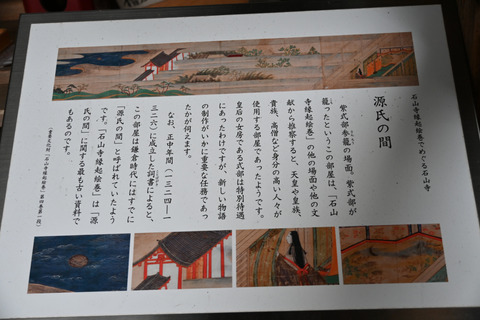 石山寺縁起絵巻でめぐる石山寺
源氏の間
紫式部参籠の場面。紫式部が
籠ったというこの部屋は、「石山
寺縁起絵巻」の他の場面や他の文
献から推察すると、天皇や皇族、
貴族、高僧など身分の高い人々が
使用する部屋であったようです。
皇后の女房である式部は特別待遇
にあったわけですが、新しい物語
の制作がいかに重要な任務であっ
たかが伺えます。
なお、正中年間（一三二四―一
三二六）に成立した詞書によると、
この部屋は鎌倉時代にはすでに
「源氏の間」と呼ばれていたよう
です。「石山寺縁起絵巻」は「源
氏の間」に関する最も古い資料で
もあるのです。
（重要文化財「石山寺縁起絵巻」第四巻第一段）